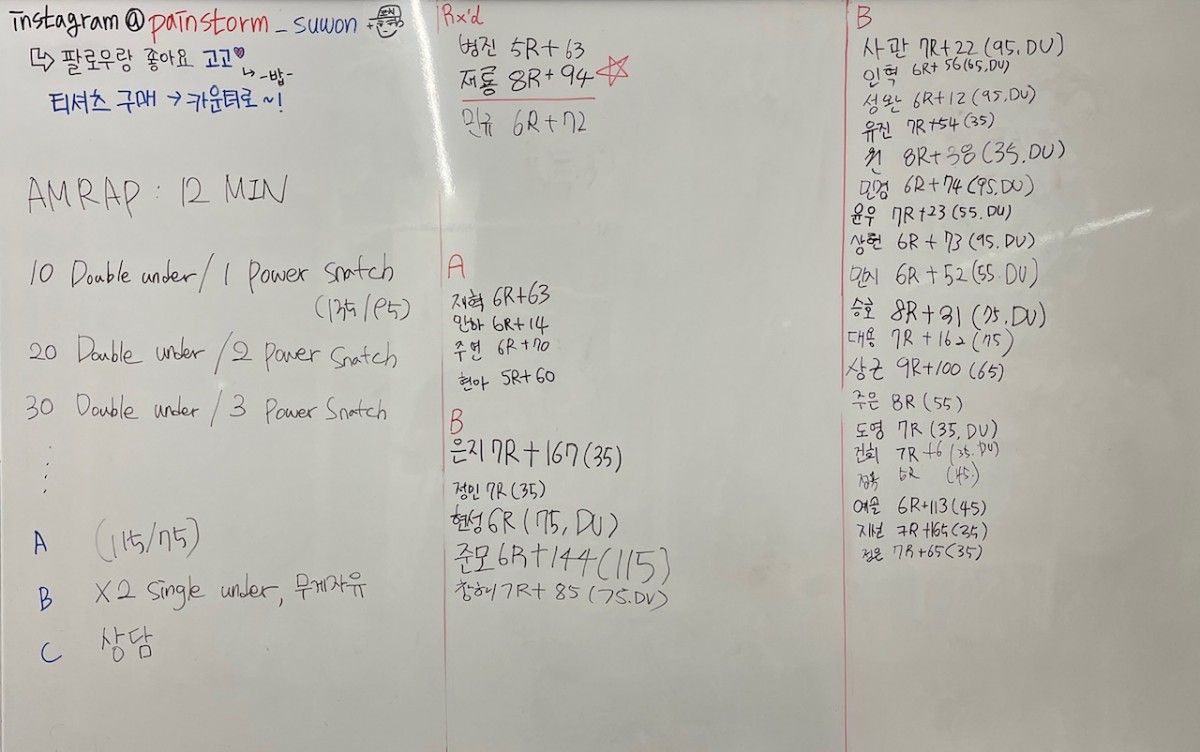 instagram@painstorm_suwon +
↳ 팔로우랑 좋아요 고고♥
↳ -밥-
티셔츠 구매 → 카운터로~!
AMRAP : 12 MIN
10 Double under / 1 power snatch
(135/95)
20 Double under / 2 power snatch
30 Double under / 3 power snatch
A (115/75)
B X2 single under, 무게자유
C 상담
Rx'd
병진 5R+63
재룡 8R+94
민규 6R+72
A
재혁 6R+63
인하 6R+14
주연 6R+70
현아 5R+60
B
은지 7R+167(35)
정인 7R(35)
현성 6R(75, DU)
준모 6R+144(115)
7R+85(75.DU)
B
사관 7R+22(95,DU)
인혁 6R+56(65,DU)
성완 6R+12(95,DU)
유진 7R+54(35)
8R+38(35.DU)
6R+74(95,DU)
윤우 7R+23(55.DU)
상현 6R+73(95.DU)
민지 6R+52(55.DU)
승호 8R+31(75.DU)
대용 7R+162(75)
상근 9R+100(65)
주은 8R(55)
도영 7R(35.DU)
건희 7R+6(35.DU)
(45)
예솔 6R+113(45)
지선 7R+165(35)
정은 7R+65(35)